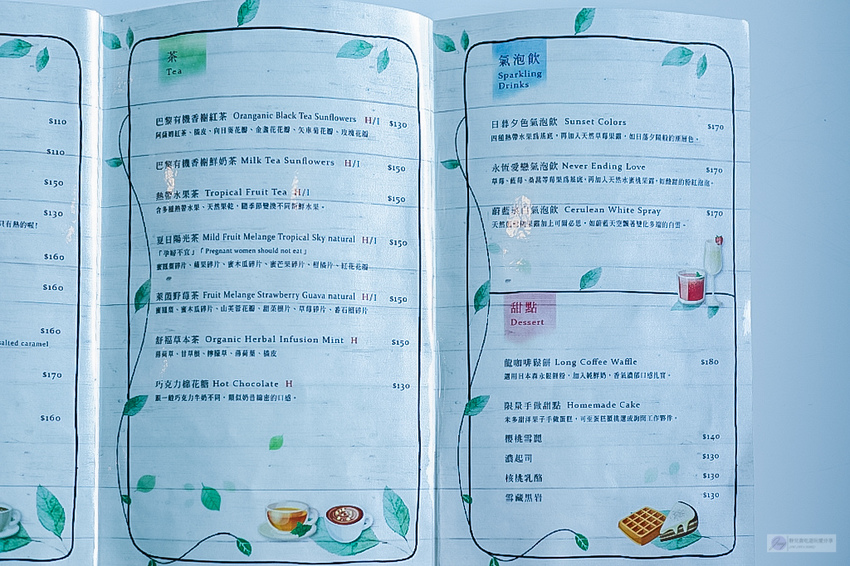 $110
$110
$150
$130
只有熱的喔!
$160
$160
$160
salted caramel
$170
$160
茶
Tea
巴黎有機香榭紅茶 Oranganic Black Tea Sunflowers H/I $130
阿薩姆紅茶、橘皮、向日葵花瓣、金盞花花瓣、矢車菊花瓣、玫瑰花瓣
巴黎有機香榭鮮奶茶 Milk Tea Sunflowers H/I $150
熱帶水果茶 Tropical Fruit Tea H/I $150
含多種熱帶水果、天然果乾，隨季節變換不同新鮮水果。
夏日陽光茶 Mild Fruit Melange Tropical Sky natural H/I $150
「孕婦不宜」「Pregnant women should not eat」
蜜鳳梨碎片、蘋果碎片、蜜木瓜碎片、蜜芒果碎片、柑橘片、紅花花瓣
萊茵野莓茶 Fruit Melange Strawberry Guava natural H/I $150
蜜鳳梨、蜜木瓜碎片、山芙蓉花瓣、甜菜根片、草莓碎片、番石榴碎片
舒福草本茶 Organic Herbal Infusion Mint H $150
薄荷草、甘草根、檸檬草、薄荷葉、橘皮
巧克力棉花糖 Hot Chocolate H $130
跟一般巧克力牛奶不同，類似奶昔綿密的口感。
氣泡飲
Sparkling
Drinks
日暮夕色氣泡飲 Sunset Colors $170
四種熱帶水果為基底，再加入天然草莓果露，如日落夕陽般的漸層色。
永恆愛戀氣泡飲 Never Ending Love $170
草莓、藍莓、桑葚等莓果為基底，再加入天然水蜜桃果露，如熱甜的粉紅泡泡。
蔚藍 氣泡飲 Cerulean White Spray $170
果露加上可爾必思，如蔚藍天空飄著變化多端的白雲。
甜點
Dessert
龍咖啡鬆餅 Long Coffee Waffle $180
選用日本森永鬆餅粉、加入純鮮奶，香氣濃郁口感扎實。
限量手做甜點 Homemade Cake
米多甜洋菓子手做蛋糕，可至蛋糕櫃挑選或詢問工作夥伴。
櫻桃雪麗 $140
濃起司 $130
核桃乳酪 $130
雪藏黑岩 $130